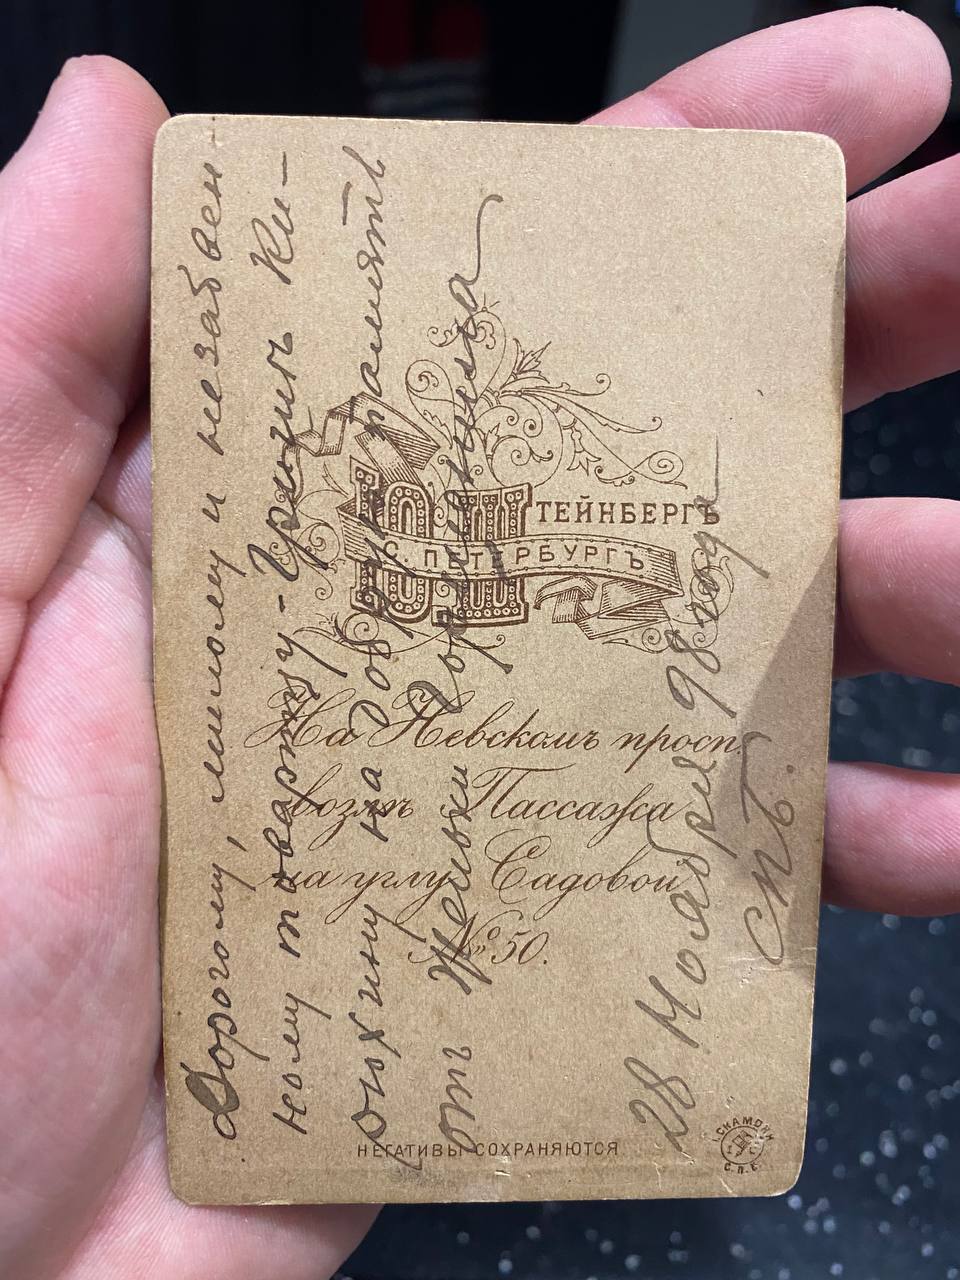 Дорогому, милому и незабвен-
ному товарищу - Грише Ки-
юхину на добрую память
отъ Женьки Горюнина
28 Ноября 98 года
СПБ.
Ю. ШТЕЙНБЕРГЪ
С. ПЕТЕРБУРГЪ
На Невскомъ просп.
возлѣ Пассажа
на углу Садовой
№ 50.
НЕГАТИВЫ СОХРАНЯЮТСЯ
С.П.Б.